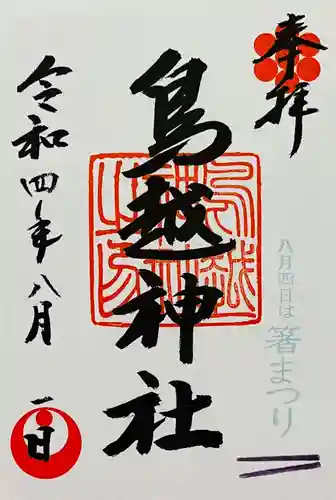 奉拝
八月四日は
箸まつり
鳥越神社
令和四年八月一日